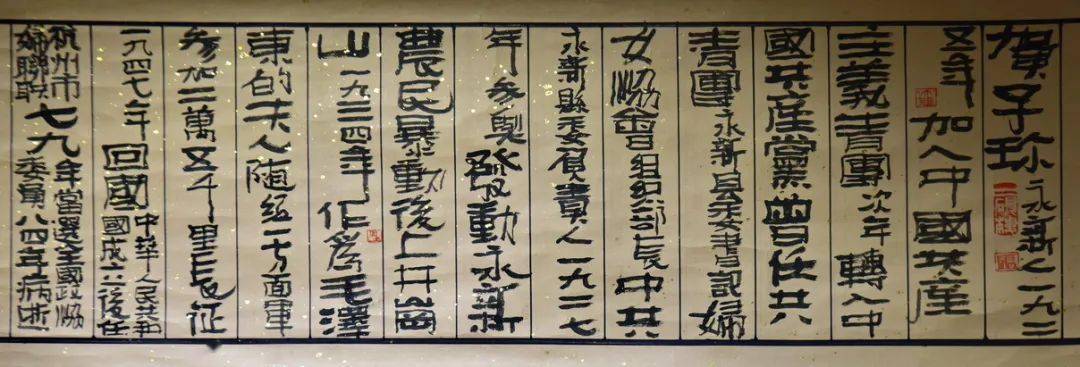 賀子珍永新人一九二
五年加入中國共産
主義青團次年轉入中
國共産黨曾任共
青團永新縣委書記婦
女協會組織部長中共
永新縣委負責人一九二七
年參與發動永新
農民暴動後上井崗
山一九三四年作爲毛澤
東的夫人隨紅一方面軍
參加二萬五千里長征
一九四七年回國中華人民共和
國成立後任
杭州市
婦聯
七九年當選全國政協
委員八四年病逝